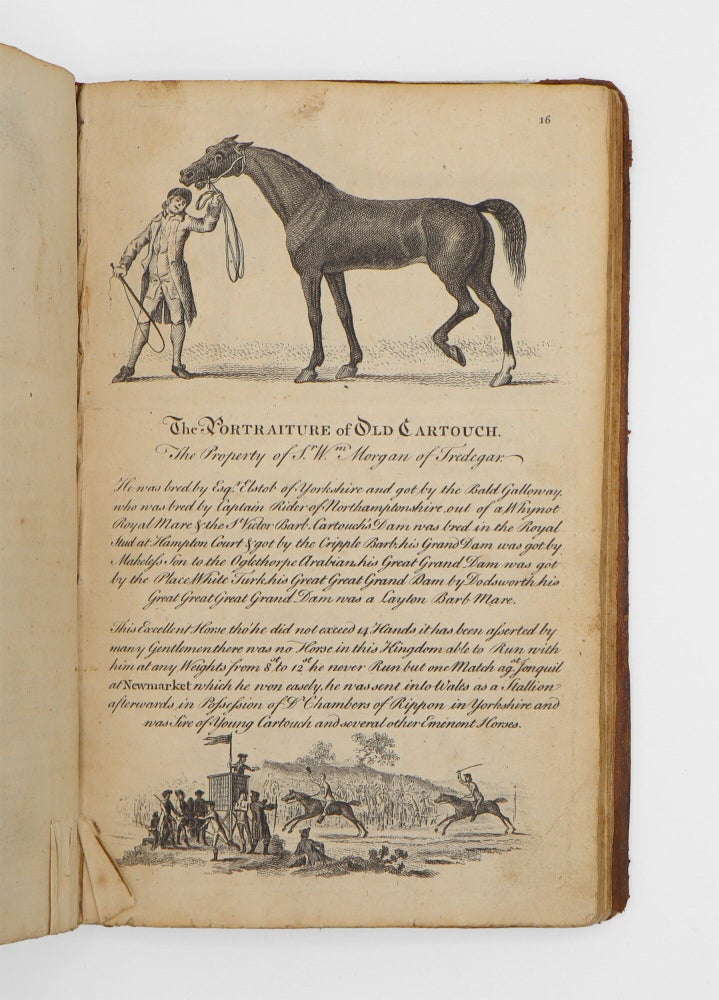 16
The PORTRAITURE of OLD CARTOUCH.
The Property of Sr. Wm. Morgan of Tredegar.
He was bred by Esqr. Elstob of Yorkshire and got by the Bald Galloway,
who was bred by Captain Rider of Northamptonshire, out of a Whynot
Royal Mare & the St Victor Barb. Cartouch's Dam was bred in the Royal
Stud at Hampton Court & got by the Cripple Barb, his Grand Dam was got by
Makeless Son to the Oglethorpe Arabian, his Great Grand Dam was got
by the Place White Turk, his Great Great Grand Dam by Dodsworth, his
Great Great Great Grand Dam was a Layton Barb Mare.
This Excellent Horse, tho' he did not exceed 14 Hands it has been asserted by
many Gentlemen there was no Horse in this Kingdom able to Run with
him at any Weights from 8st. to 12st. he never Run but one Match agst. Jonquil
at Newmarket which he won easely, he was sent into Wales as a Stallion
afterwards in Possession of Dr. Chambers of Rippon in Yorkshire and
was Sire of Young Cartouch and several other Eminent Horses.